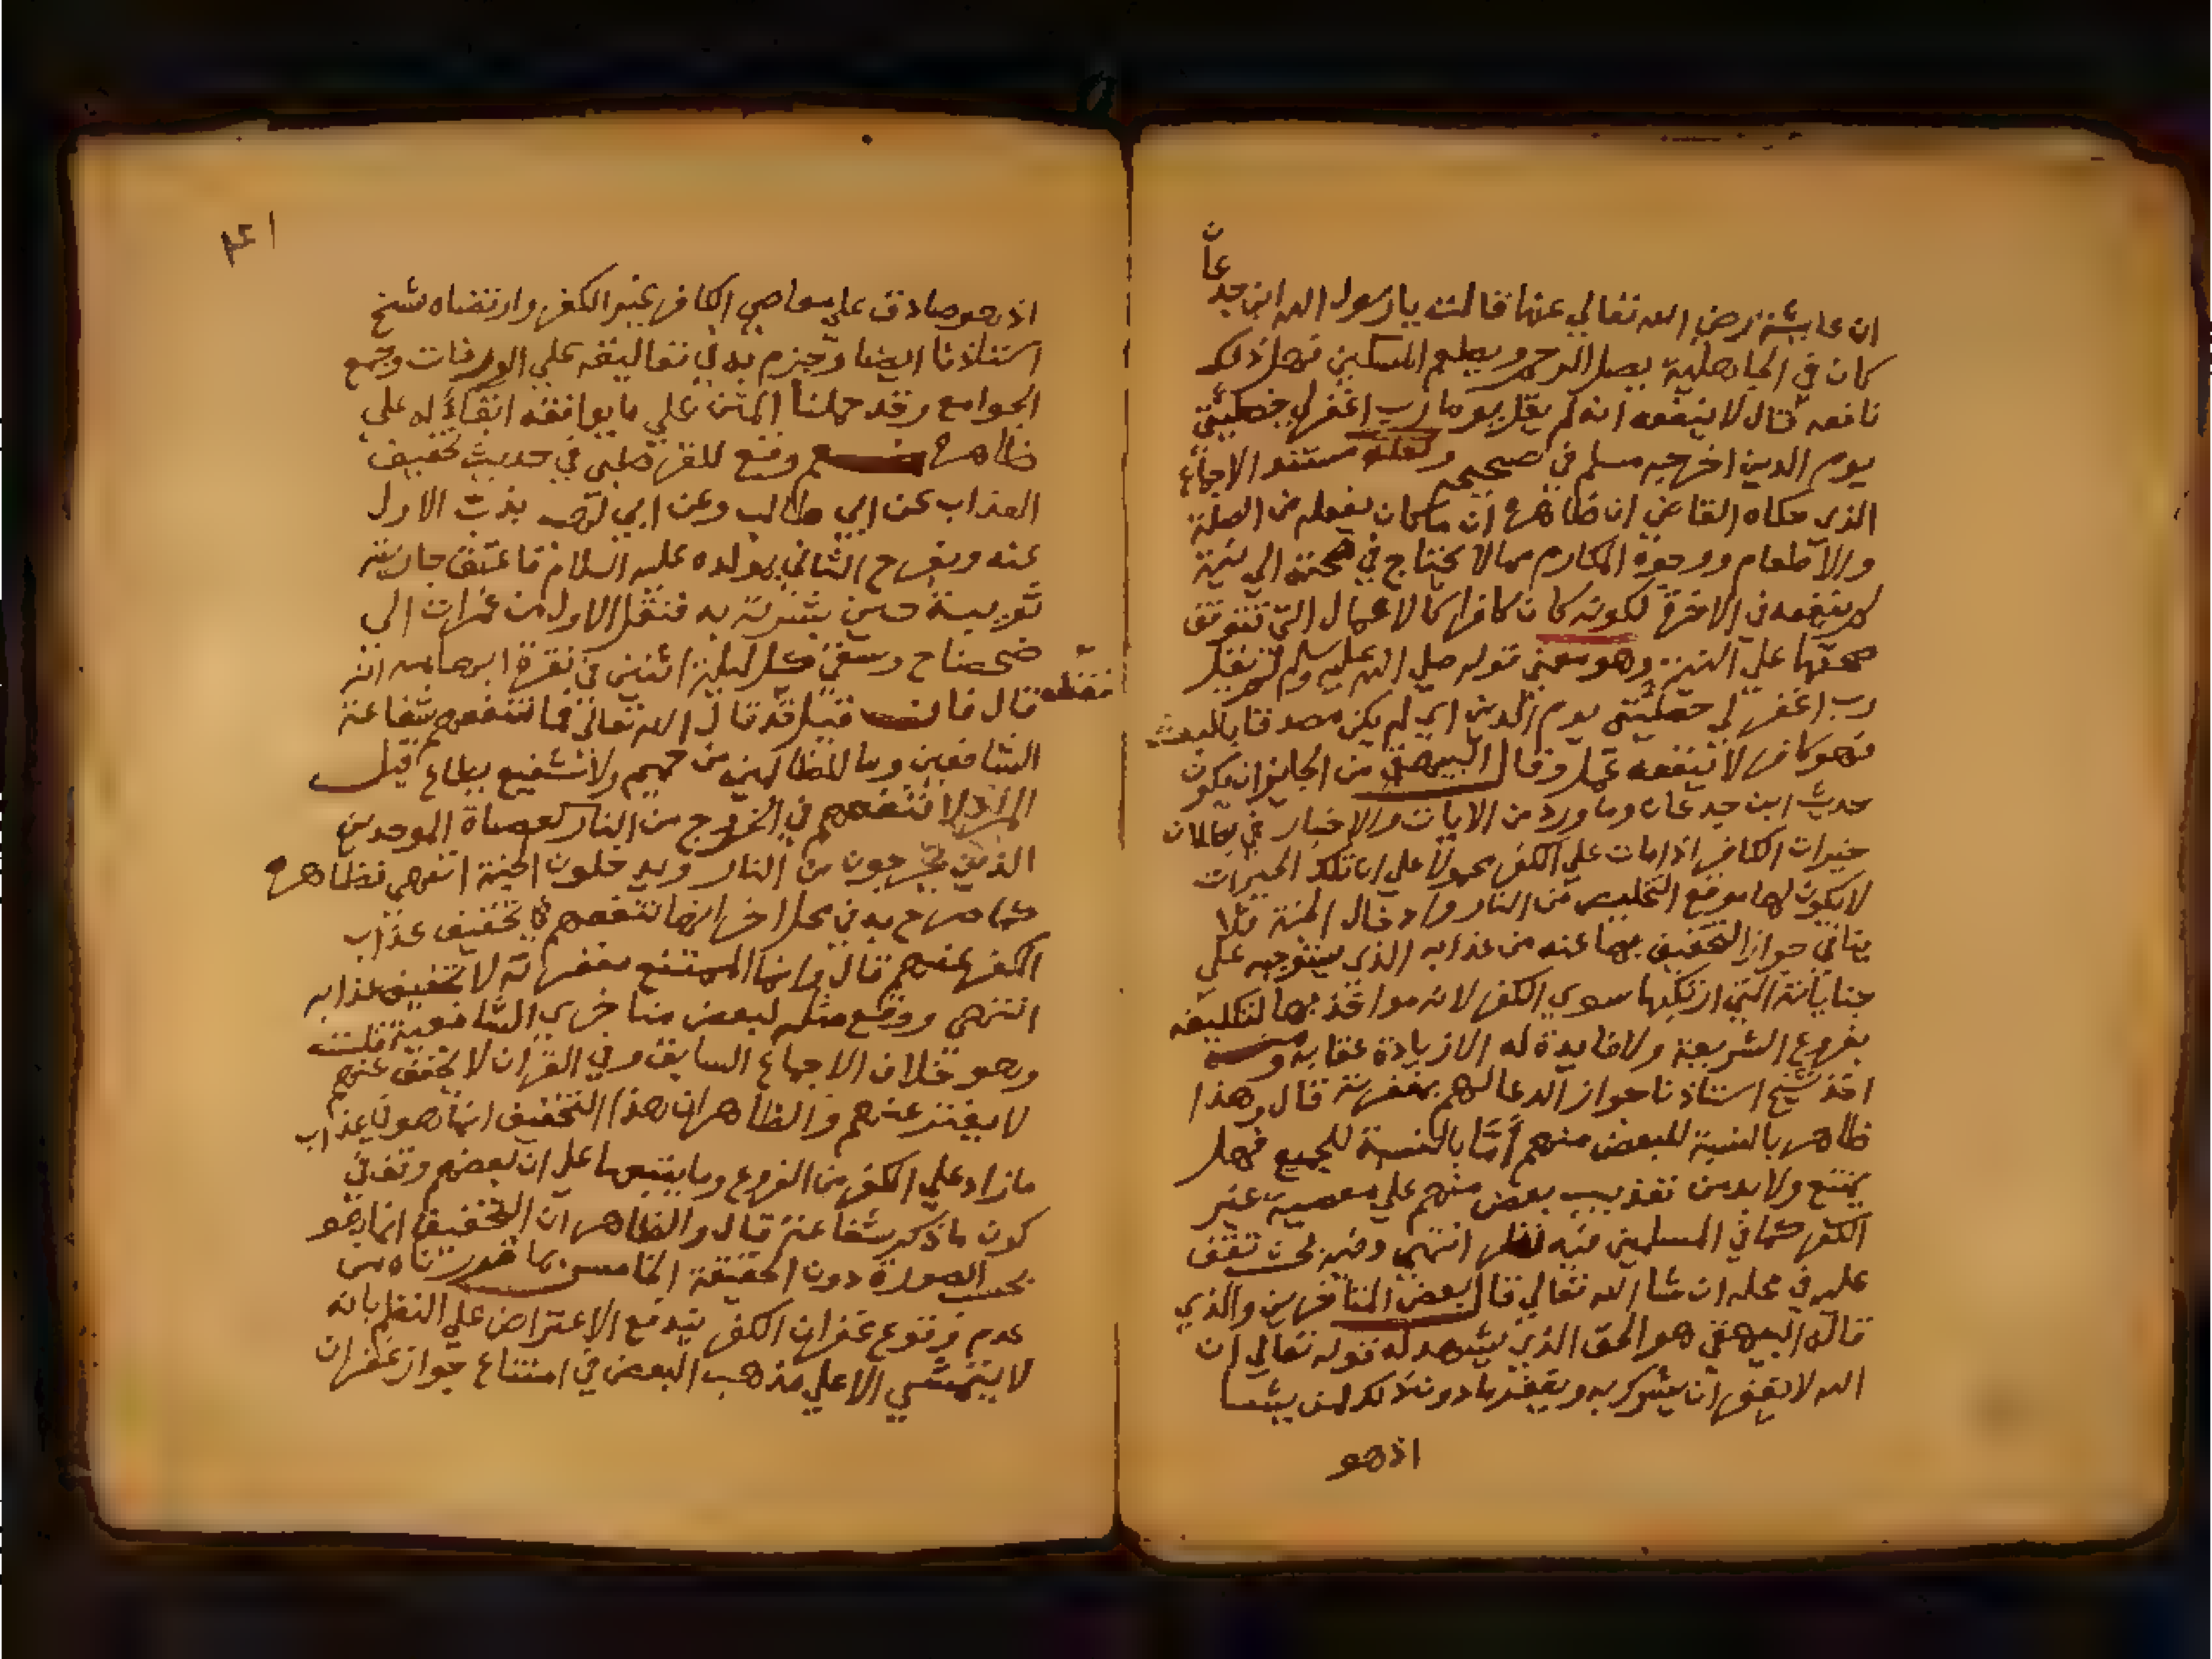 ان عايشة رضي الله تعالي عنها قالت يا رسول الله ابن جد
عان
كان في الجاهلية يصل الرحم ويطعم المسكين فهل ذلك
نافعه قال لا ينفعه انه لم يقل يوما رب اغفر لي خطيئتي
يوم الدين اخرجه مسلم في صحيحه ولعله مستند الاجماع
الذي حكاه القاضي ان ظاهره ان ما كان يفعله من الصلة
والاطعام ووجوه المكارم مما لا يحتاج في صحته الي نية
لم ينفعه في الاخرة لكونه كان كافرا كالاعمال التي تتوقف
صحتها علي النية وهو معني قوله صلي الله عليه وسلم لم يقل
رب اغفر لي خطيئتي يوم الدين اي لم يكن مصدقا بالبعث
فهو كافر لا ينفعه عمل وقال البيهقي من الجايز ان يكون
حديث ابن جدعان وما ورد من الايات والاخبار في بطلان
خيرات الكافر اذا مات علي الكفر محمولا علي ان تلك الخيرات
لا يكون لها موقع التخليص من النار وادخال الجنة فلا
ينافي جواز التخفيف بها عنه من عذابه الذي يستوجبه علي
جناياته التي ارتكبها سوي الكفر لانه مواخذ بها لتكليفه
بفروع الشريعة ولا فايدة له الا زيادة عقابه ومنه
اخذ شيخ استاذنا جواز الدعا لهم بمغفرته قال وهذا
ظاهر بالنسبة للبعض منهم أمّا بالنسبة للجميع فهل
يمتنع ولا بد من تعذيب بعض منهم علي معصية غير
الكفر كما في المسلمين فيه نظر انتهي وفيه بحث تقف
عليه في محله ان شا الله تعالي قال بعض المتاخرين والذي
قاله البيهقي هو الحق الذي يشهد له قوله تعالي ان
الله لا يغفر ان يشرك به ويغفر ما دون ذلك لمن يشا
اذ هو
١٤٢
اذ هو صادق علي معاصي الكافر غير الكفر وارتضاه شيخ
استاذنا ايضا وجزم به في تعاليقه علي الورقات وجمع
الجوامع وقد حملنا المتن علي ما يوافقه ابقاءً له علي
ظاهره وقع للقرطبي في حديث تخفيف
العذاب عن ابي طالب وعن ابي لهب بذب الاول
عنه وبفرح الثاني بمولده عليه السلام فاعتق جاريته
ثويبة حين بشرته به فنقل الاول من غمرات الي
ضحضاح وسقي كل ليلة اثنين في نقرة ابهامه انه
نقله
قال فان قيل قد قال الله تعالي فما تنفعهم شفاعة
الشافعين وما للظالمين من حميم ولا شفيع يطاع قيل
المراد لا تنفعهم في الخروج من النار كعصاة الموحدين
الذين يخرجون من النار ويدخلون الجنة انتهي فظاهره
كما صرح به في محل اخر انها تنفعهم في تخفيف عذاب
الكفر عنهم قال وانما الممتنع مغفرته لا تخفيف عذابه
انتهي ووقع مثله لبعض متاخري الشافعية قلت
وهو خلاف الاجماع السابق وفي القران لا يخفف عنهم
لا يفتر عنهم والظاهر ان هذا التخفيف انما هو في عذاب
ما زاد علي الكفر من الفروع وما يتبعها علي ان بعضهم وقف في
كون ما ذكر شفاعة قال والظاهر ان التخفيف انما هو
بحسب الصورة دون الحقيقة الخامس بما قررناه من
عدم وقوع غفران الكفر يندفع الاعتراض علي النظم بانه
لا يتمشي الا علي مذهب البعض في امتناع جواز غفران